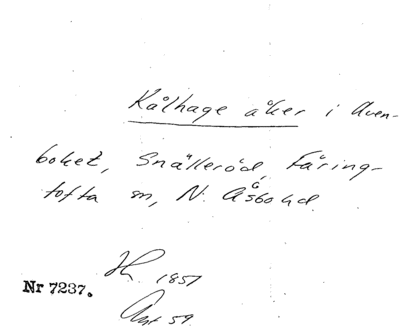 Kålhage åker i Aven-
boket, Snälleröd, Färing-
tofta sn, N. Åsbo hd.
1857
Nr 7237.
59